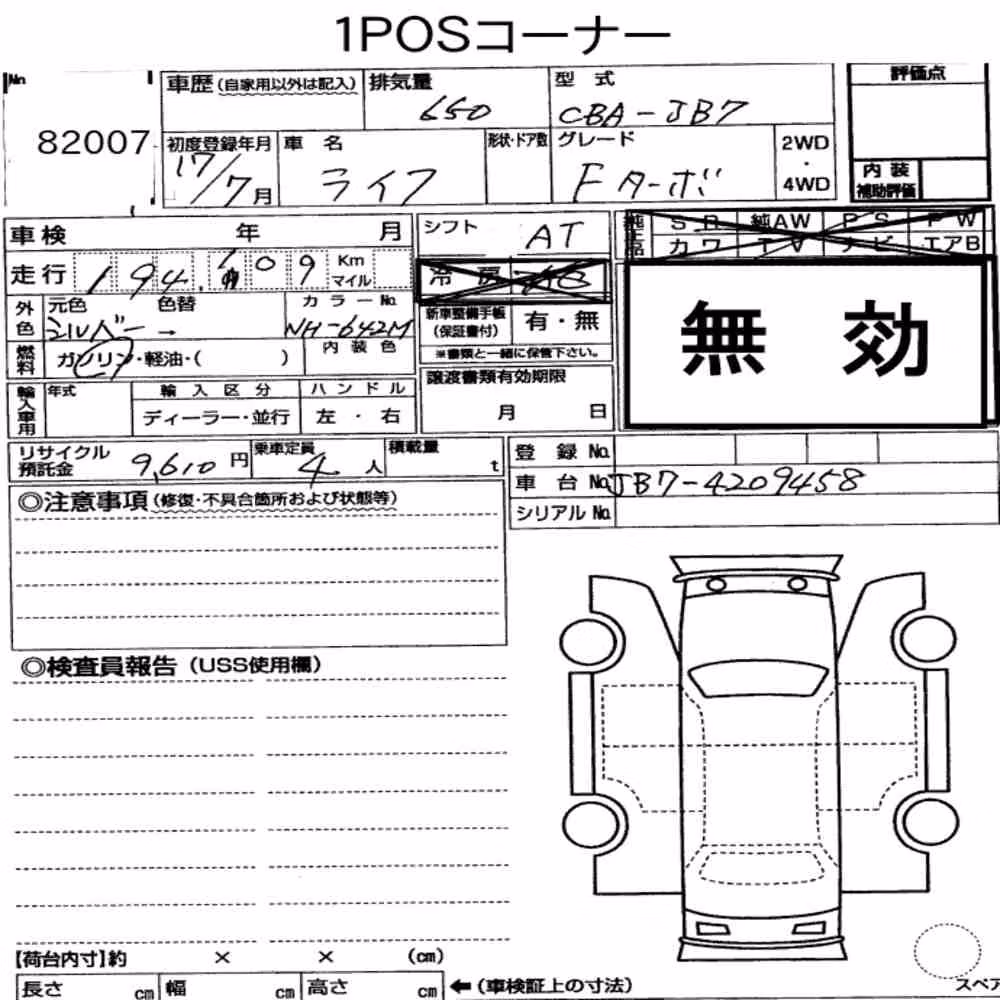 1POSコーナー
No
82007
車歴 (自家用以外は記入)
排気量
650
型 式
CBA-JB7
評価点
初度登録年月
17/7月
車 名
ライフ
形状・ドア数
グレード
Fターボ
2WD
・
4WD
内 装
補助評価
車検 年 月
シフト
AT
純正品
S R 純AW P S P W
カワ T V ナビ エアB
走行
Km
マイル
冷 房
外色
元色 色替
シルバー →
カラーNo.
NH-642M
新車整備手帳
(保証書付)
有・無
※書類と一緒に保管下さい。
無 効
燃料
ガソリン・軽油・( )
内 装 色
譲渡書類有効期限
月 日
輸入車用
年式
輸 入 区 分
ディーラー・並行
ハンドル
左 ・ 右
リサイクル
預託金
9,610 円
乗車定員
4 人
積載量
t
登 録 No.
車 台 No. JB7-4209458
シリアル No.
◎注意事項 (修復・不具合箇所および状態等)
◎検査員報告 (USS使用欄)
【荷台内寸】約 × × (cm)
長さ cm 幅 cm 高さ cm ←(車検証上の寸法)
スペア